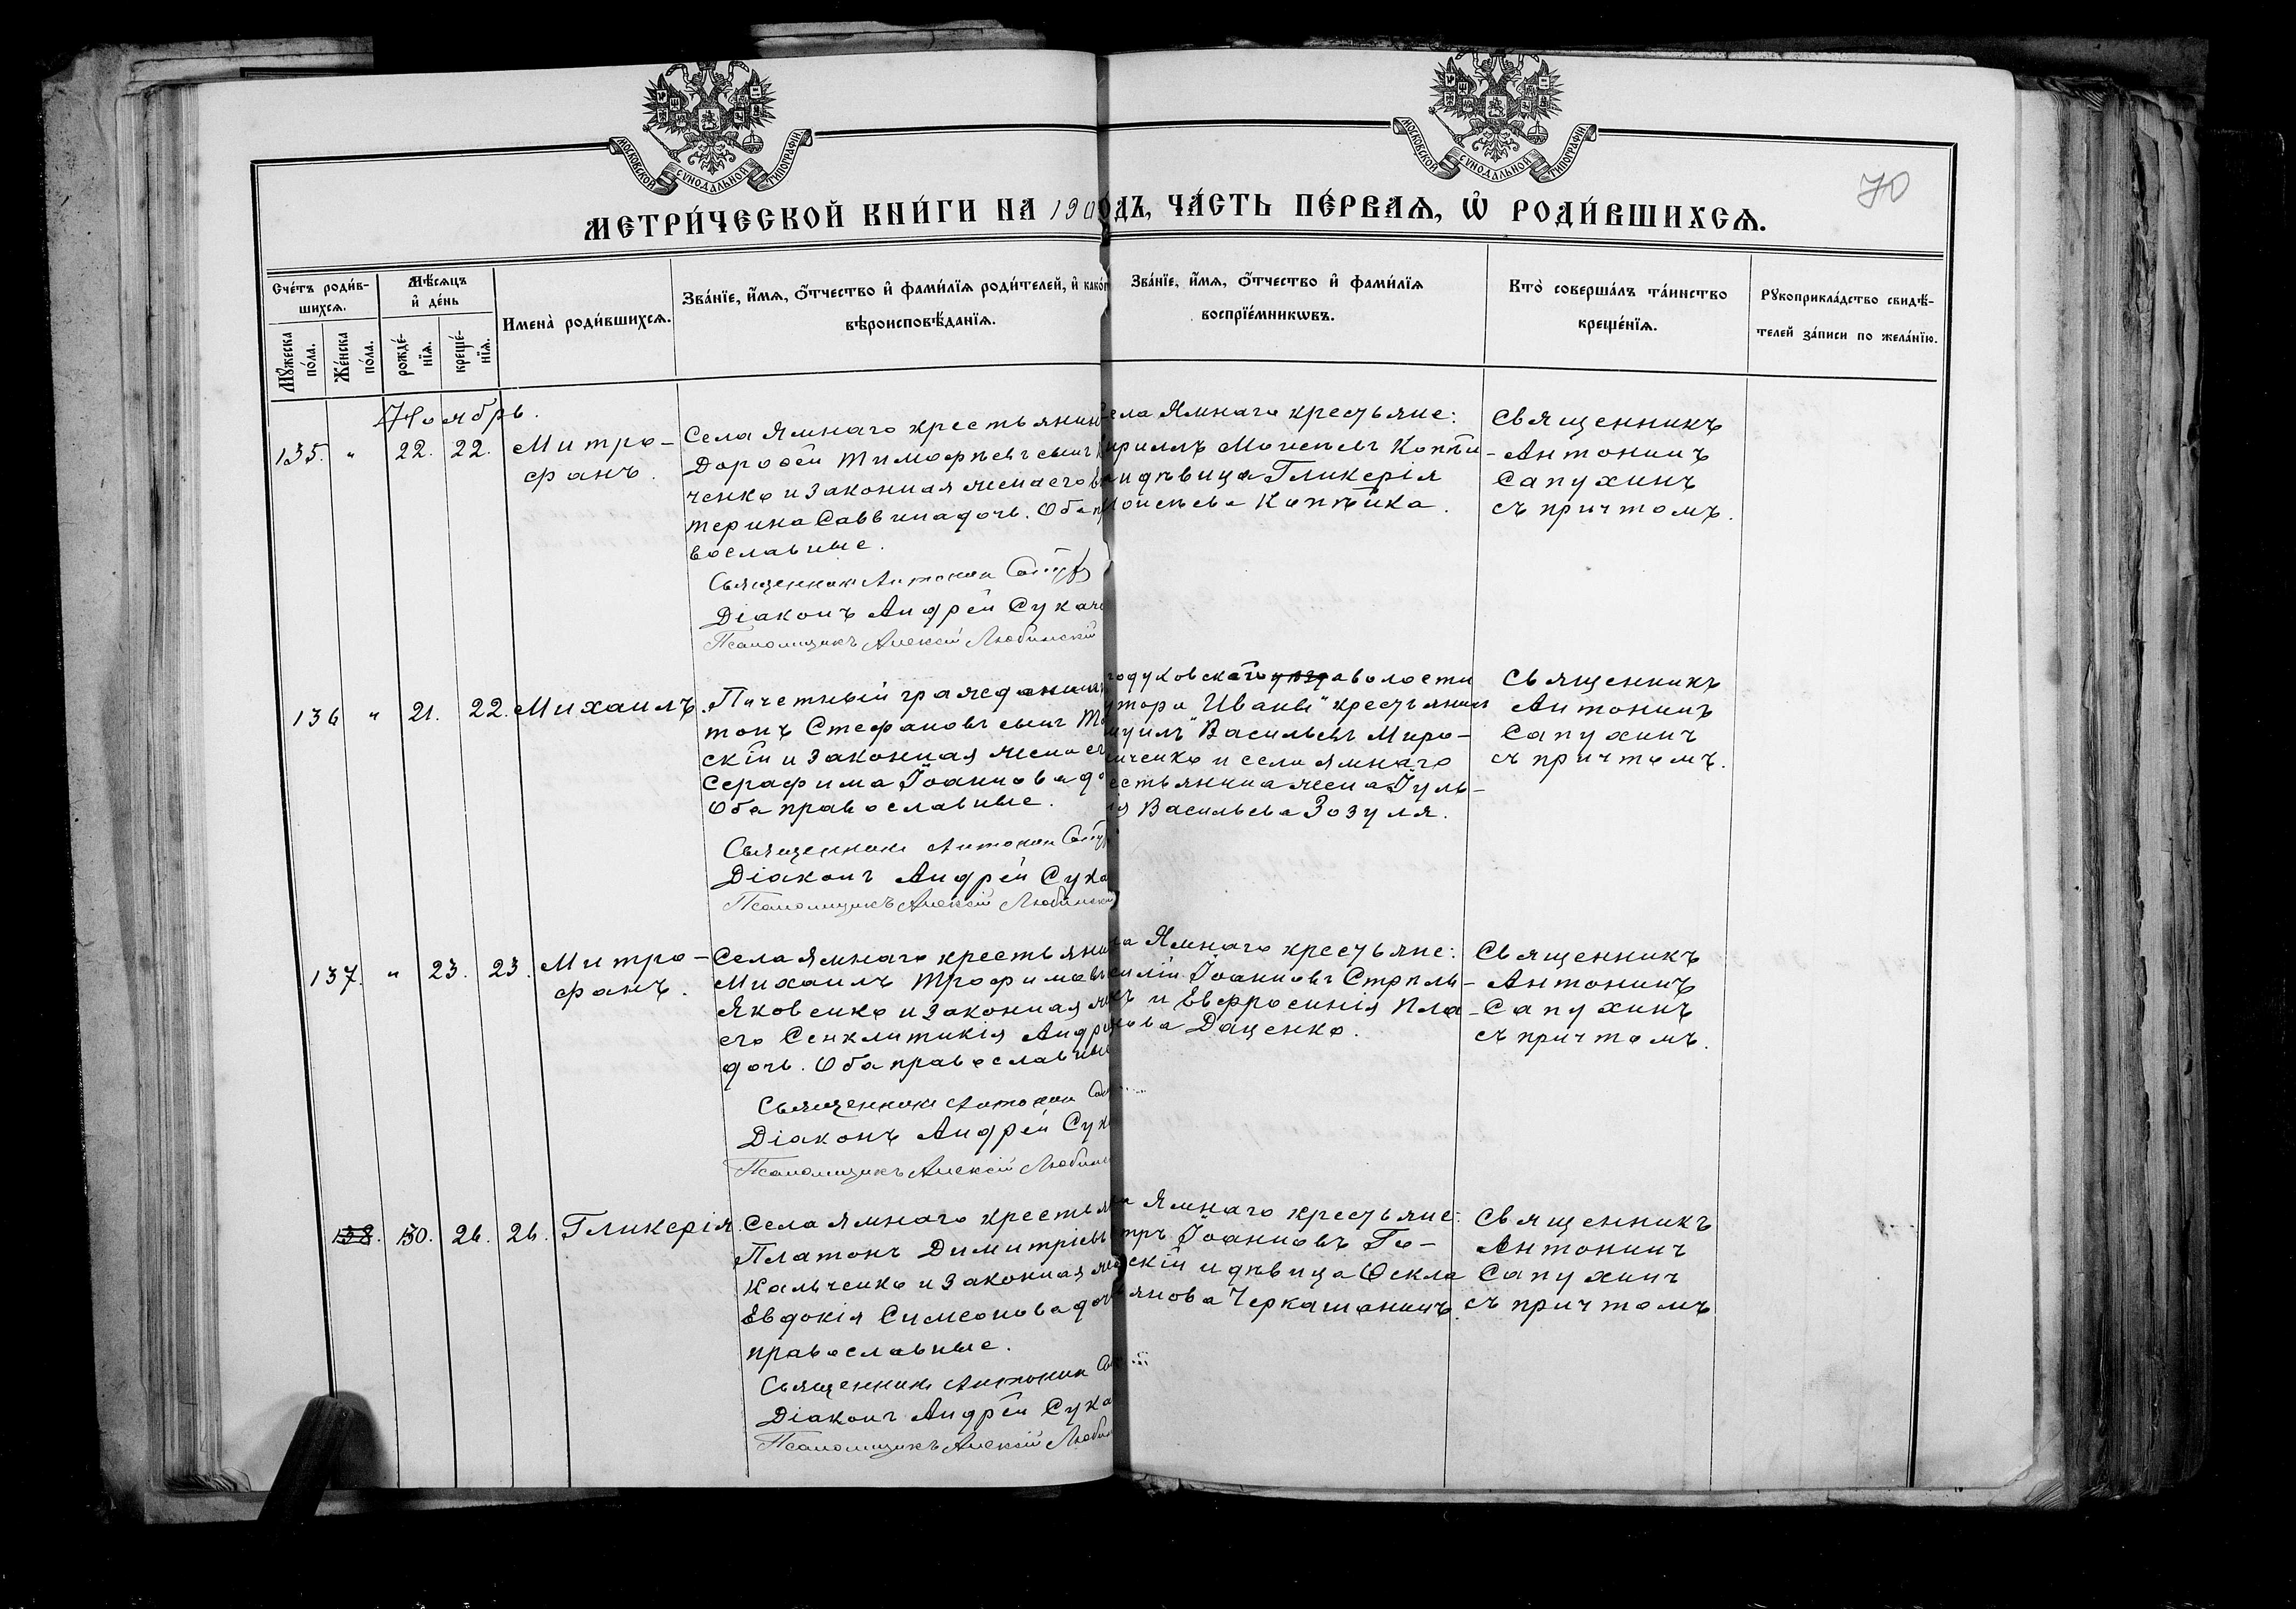 МОСКОВСКОЙ СѴНОДАЛЬНОЙ ТИПОГРАФІИ
МОСКОВСКОЙ СѴНОДАЛЬНОЙ ТИПОГРАФІИ
70
МЕТРИ́ЧЕСКОЙ КНИ́ГИ НА 190 ОДЪ, ЧА́СТЬ ПЕ́РВАѦ, Ѡ҆ РОДИ́ВШИХСѦ.
Сче́тъ роди́в-
шихсѧ.
Мꙋ́жеска по́ла.
Же́нска по́ла.
Мѣ́сѧцъ
и҆ де́нь
рожде́-
нїѧ.
креще́-
нїѧ.
Имена̀ роди́вшихсѧ.
Зва́нїе, и҆́мѧ, ѻ҆́тчество и҆ фами́лїѧ роди́телей, и҆ како́г
вѣроисповѣ́данїѧ.
Зва́нїе, и҆́мѧ, ѻ҆́тчество и҆ фами́лїѧ
воспрїе́мникѡвъ.
Кто̀ соверша́лъ та́инство
креще́нїѧ.
Рꙋкоприкла́дство свидѣ́-
телей за́писи по жела́нїю.
Ноябрь.
135. " 22. 22. Митро-
фанъ.
Села Ямнаго крестьянин
Дорофей Тимофѣевъ сынъ
ченко и законная жена его Е
терина Саввина дочь. Оба пр
вославные.
Священникъ Антонин
Діаконъ Андрей Сукач
Псаломщикъ Алексій Любинскій
ела Ямнаго крестьяне:
ириллъ Моисеевъ Копѣй-
и дѣвица Гликерія
оисеева Копѣйка.
Священникъ
Антонинъ
Сапухинъ
съ причтомъ.
136 " 21. 22. Михаилъ.
Почетный гражданин
тонъ Стефановъ сынъ
скій и законная жена ег
Серафима Іоаннова до
Оба православные.
Священникъ Антонин
Діаконъ Андрей Сука
Псаломщикъ Алексій Любинскій
годуховской уѣзда волости
утора "Иваны" крестьянинъ
муилъ Васильевъ Миро-
ниченко и села Ямнаго
естьянина жена Іуль-
ія Васильева Зозуля.
Священникъ
Антонинъ
Сапухинъ
съ причтомъ.
137. " 23. 23. Митро-
фанъ.
Села Ямнаго крестьянин
Михаилъ Трофимовъ
Яковенко и законная ж
его Сенклитикія Андр
дочь. Оба православные
Священникъ Антонин
Діаконъ Андрей Сук
Псаломщикъ Алексій Любин
ла Ямнаго крестьяне:
силій Іоанновъ Стрѣль-
къ и Евфросинія Пла-
нова Даценко.
Священникъ
Антонинъ
Сапухинъ
съ причтомъ.
138. 130. 26. 26. Гликерія.
Села Ямнаго крестья
Платонъ Димитріевъ
Кальченко и законная же
Евдокія Симеонова дочь
православные.
Священникъ Антонин
Діаконъ Андрей Сука
Псаломщикъ Алексій Любин
а Ямнаго крестьяне:
тръ Іоанновъ Го-
скій и дѣвица Ѳекла
янова Черкашанинъ.
Священникъ
Антонинъ
Сапухинъ
съ причтомъ